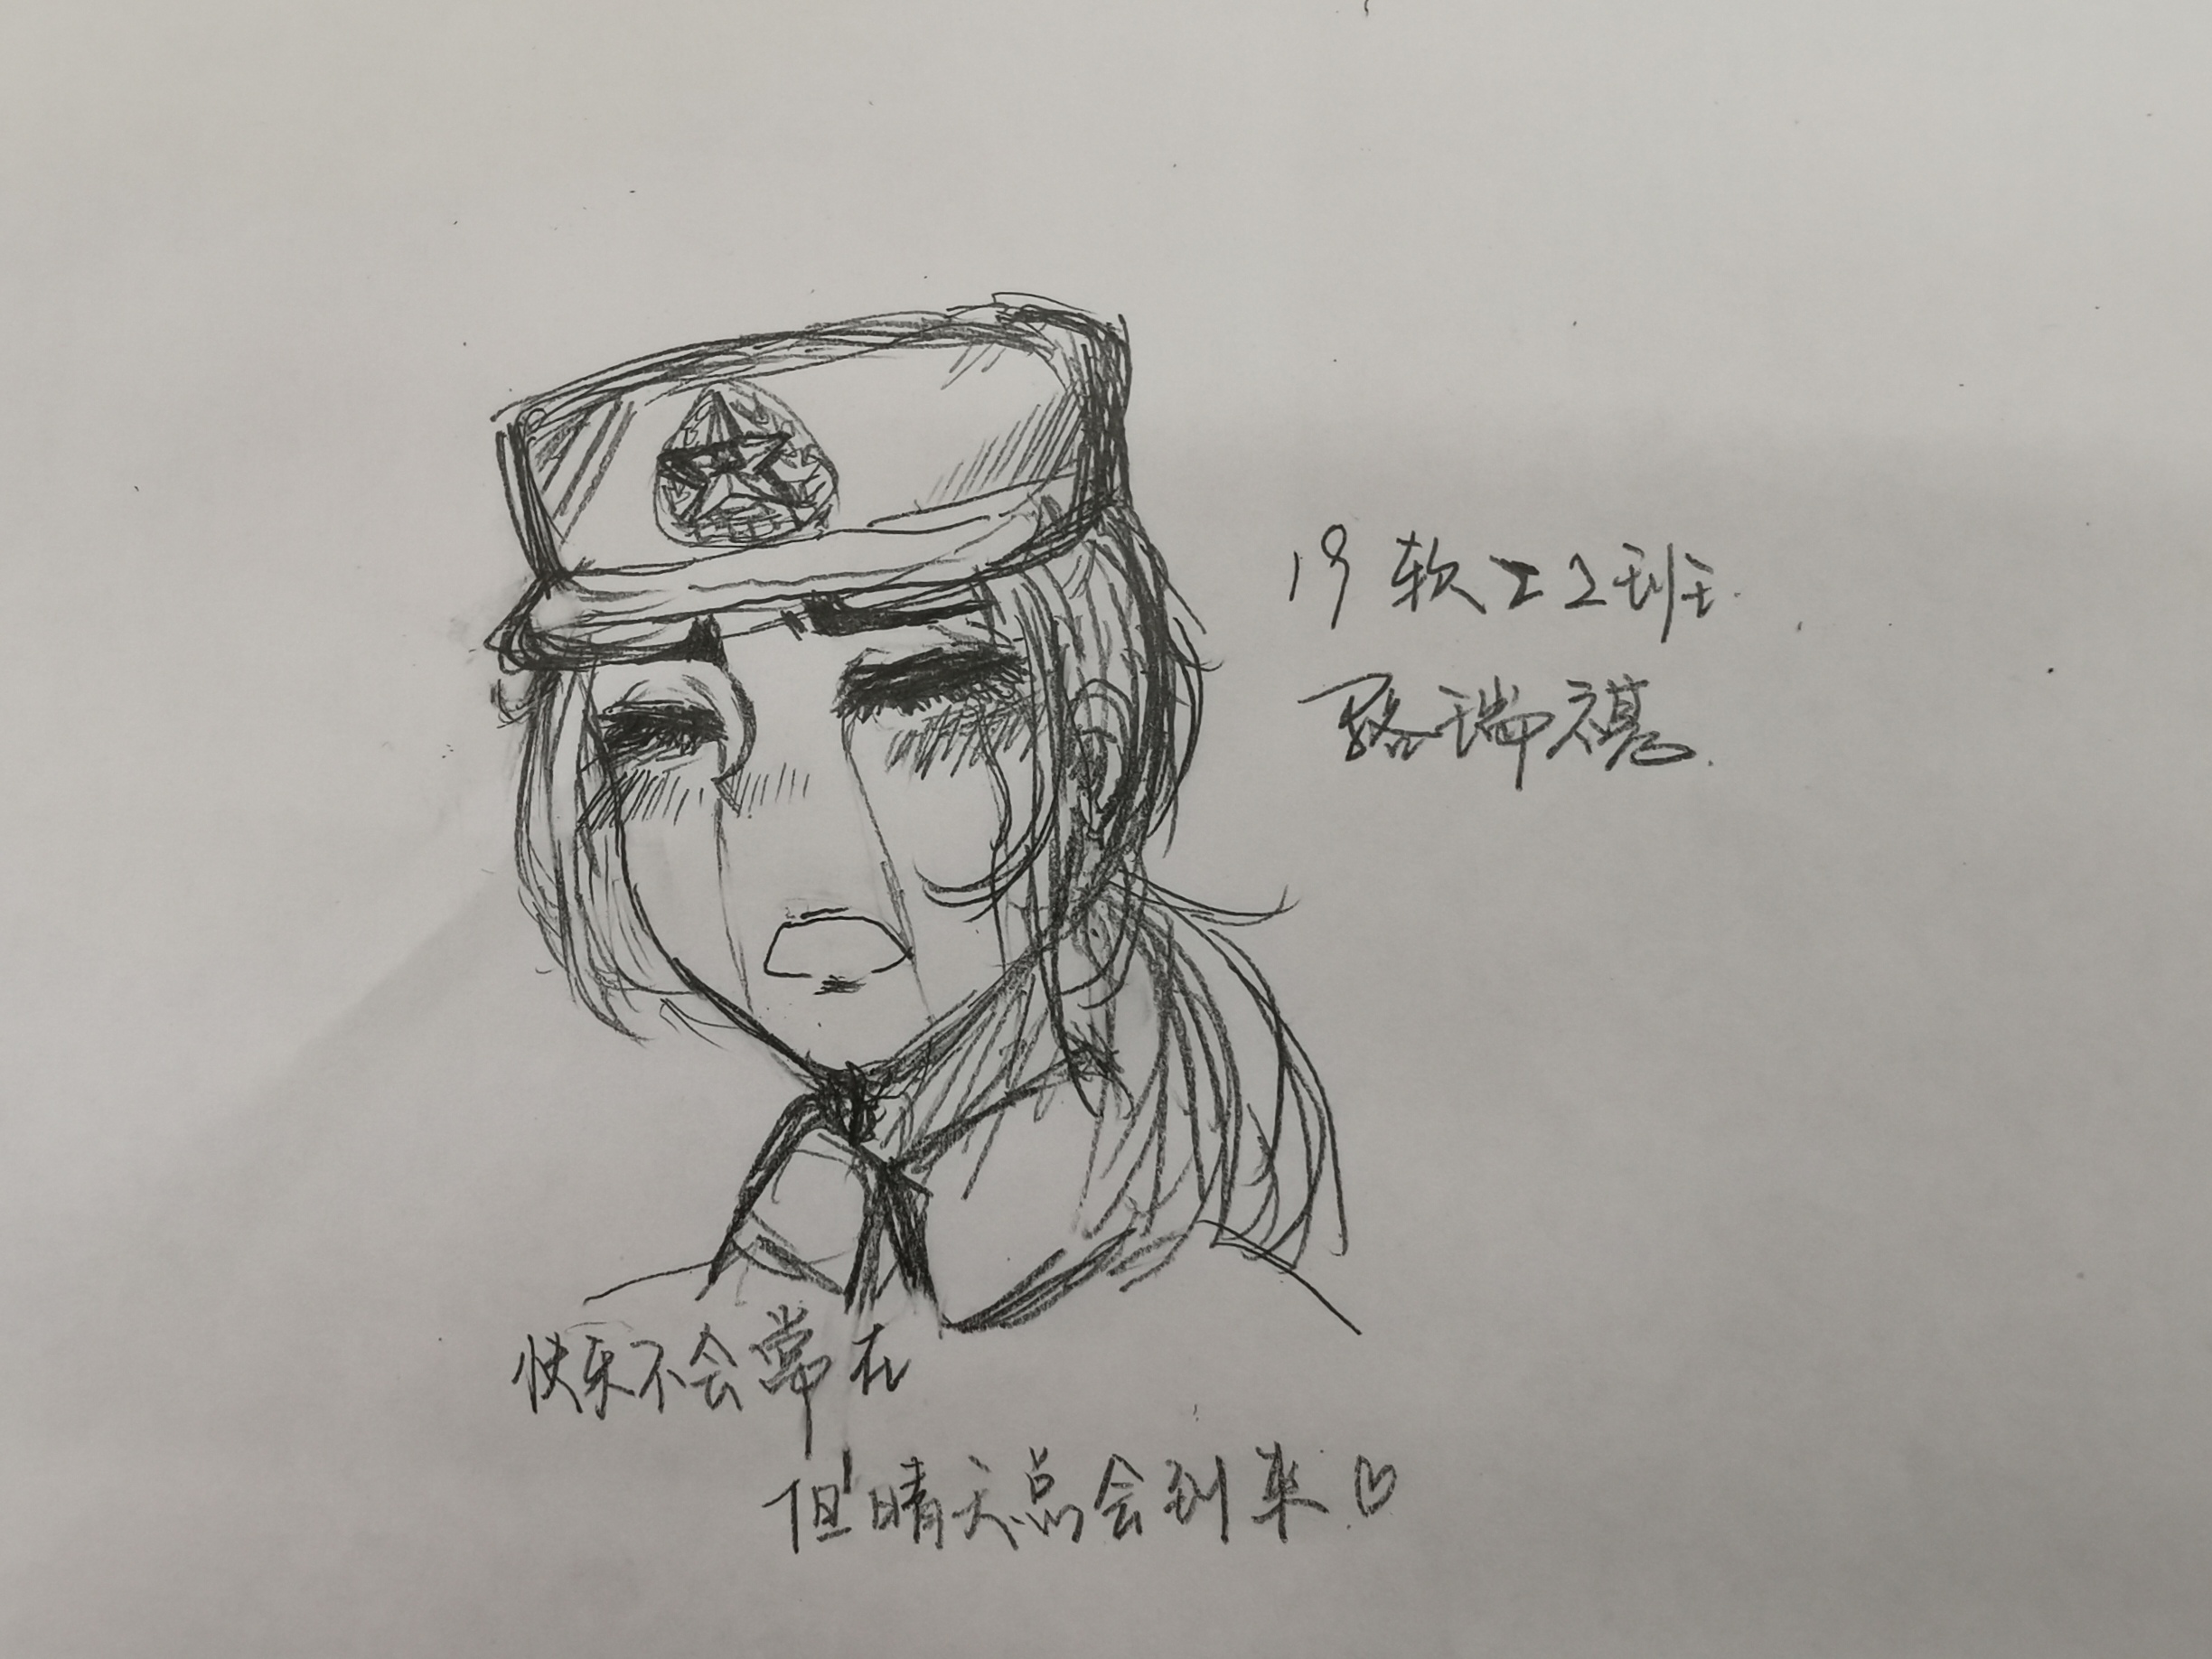 19 软工2班.
骆瑞祺.
快乐不会常在
但晴天总会到来.♡